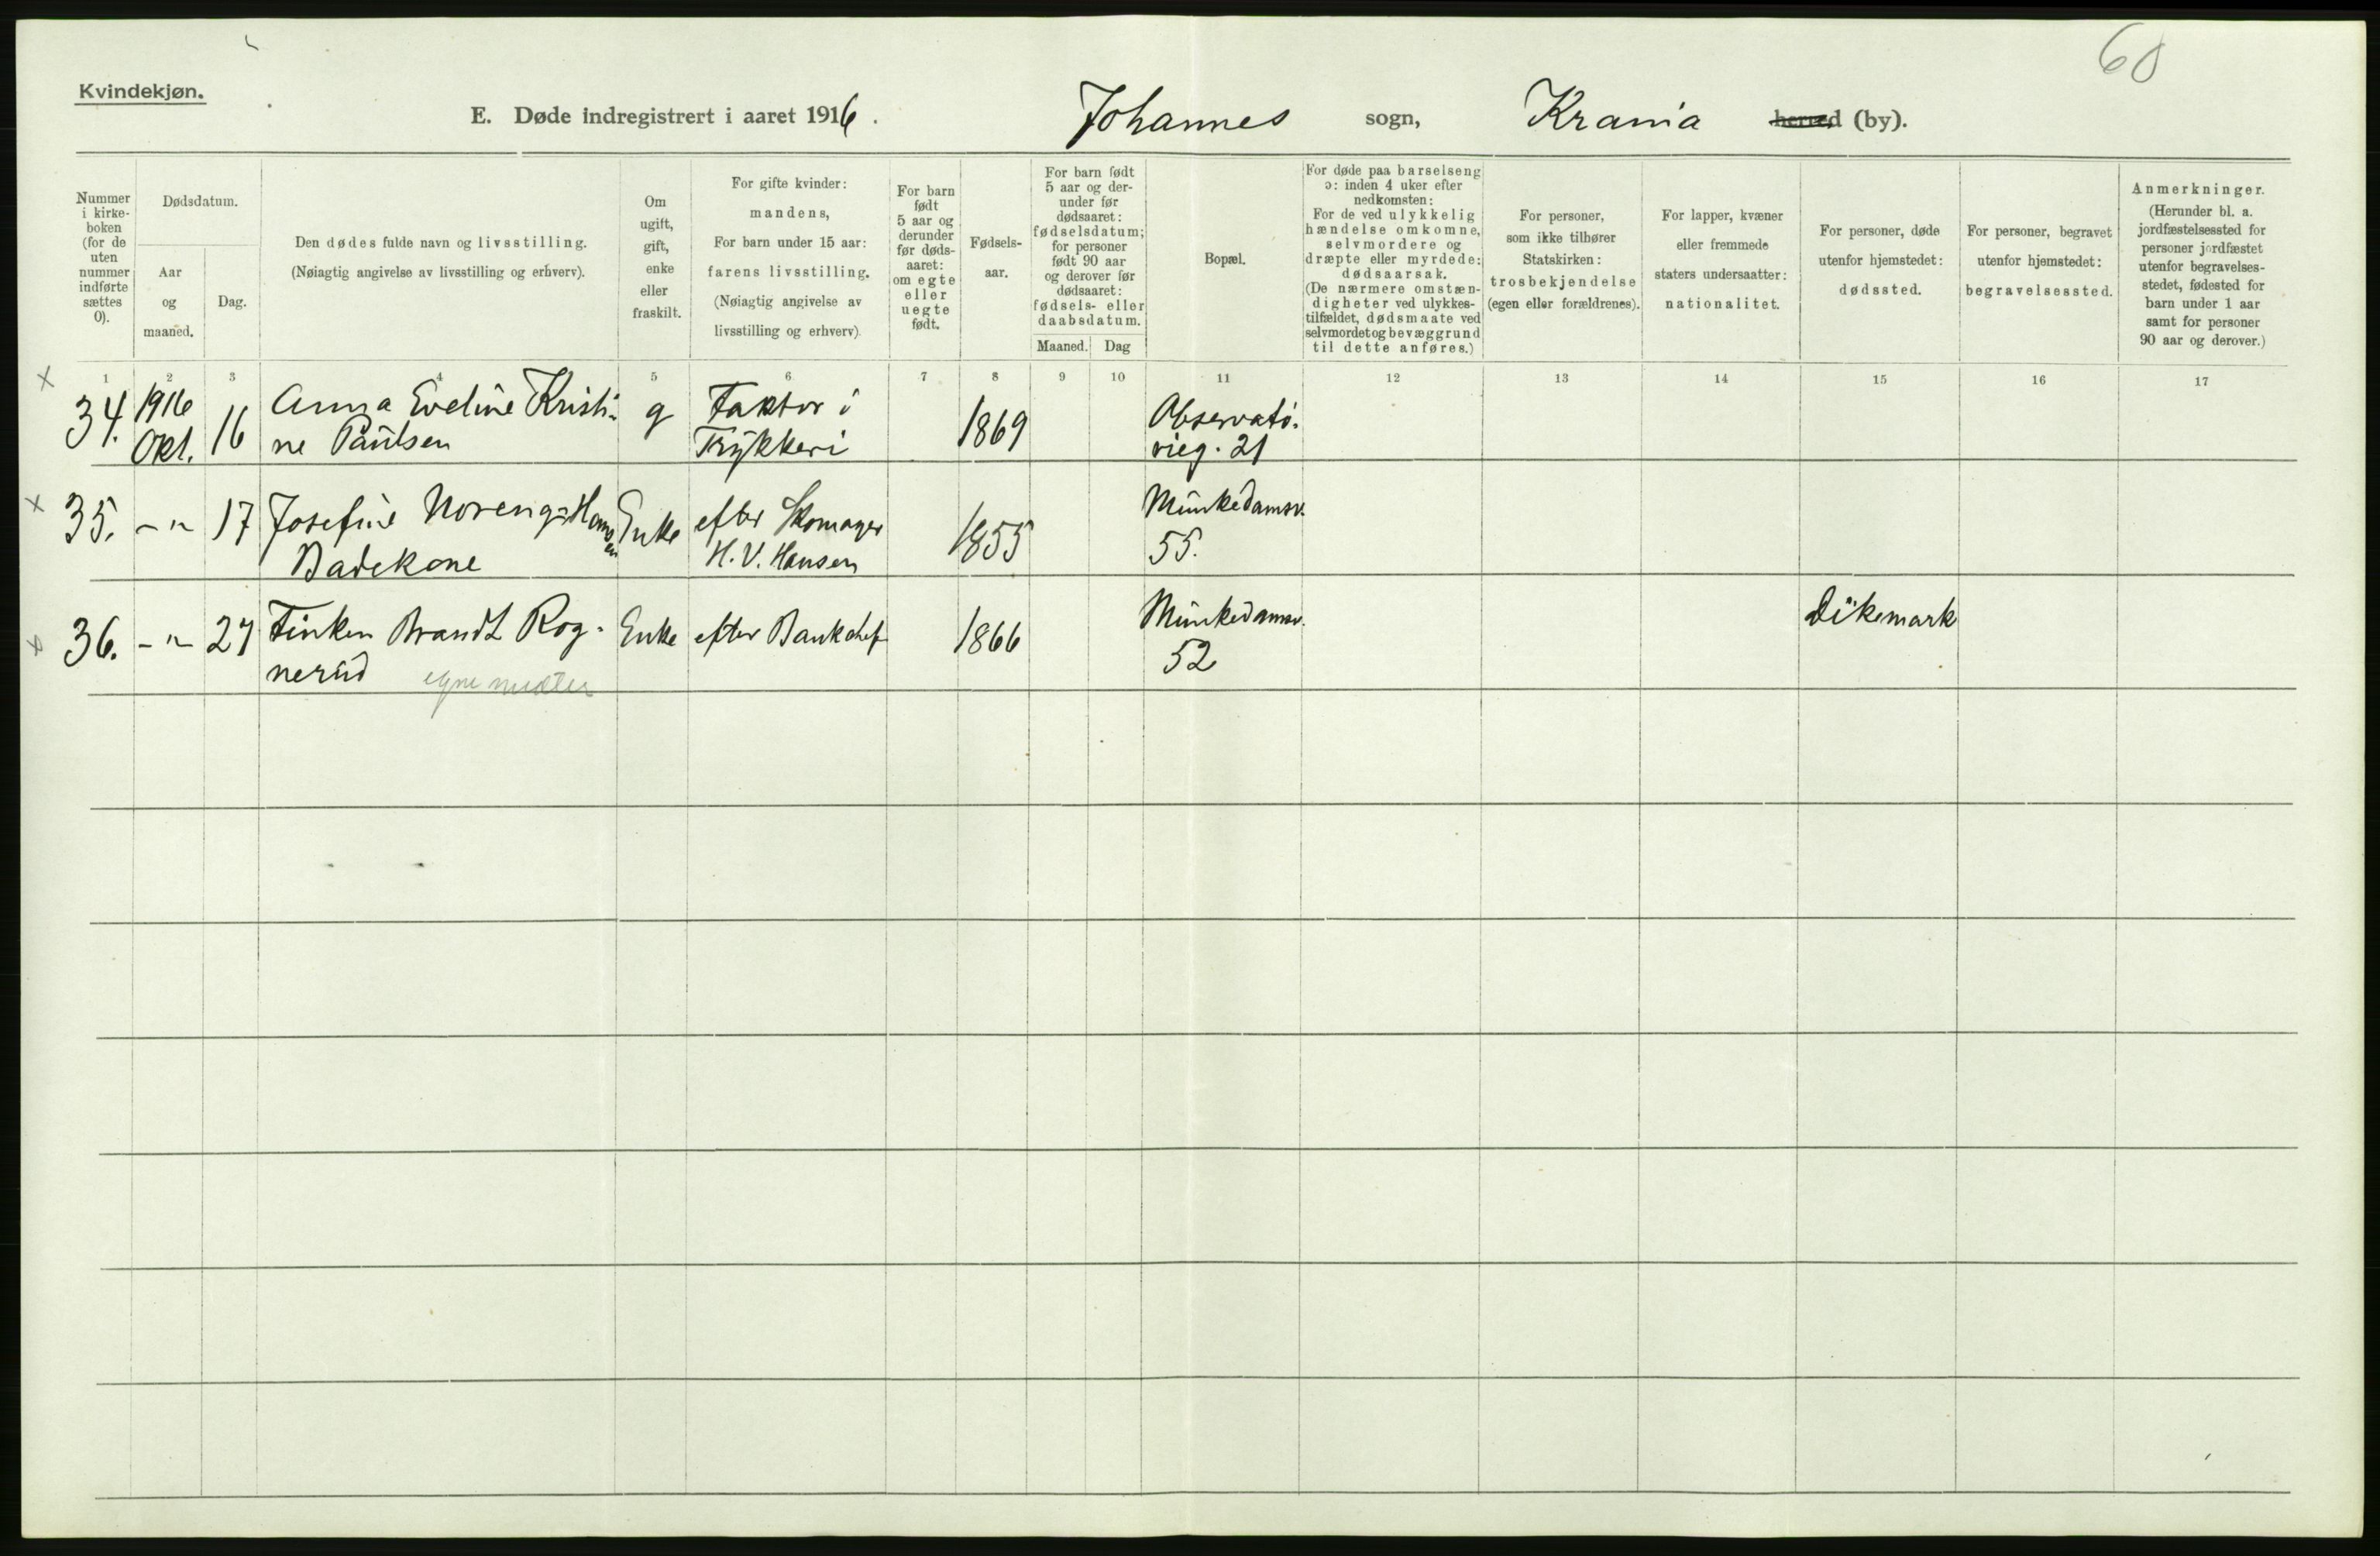 60
Kvindekjøn.
E. Døde indregistrert i aaret 1916.
Johannes sogn, Krania herred (by).
Nummer i kirke-boken (for de uten nummer indførte sættes 0).
Dødsdatum.
Aar og maaned.
Dag.
Den dødes fulde navn og livsstilling.
(Nøiagtig angivelse av livsstilling og erhverv).
Om ugift, gift, enke eller fraskilt.
For gifte kvinder:
mandens,
For barn under 15 aar:
farens livsstilling.
(Nøiagtig angivelse av
livsstilling og erhverv).
For barn født 5 aar og derunder før døds-aaret: om egte eller uegte født.
Fødsels-aar.
For barn født
5 aar og der-
under før
dødsaaret:
fødselsdatum;
for personer
født 90 aar
og derover før
dødsaaret:
fødsels- eller
daabsdatum.
Maaned. Dag
Bopæl.
For døde paa barselseng
ɔ: inden 4 uker efter
nedkomsten:
For de ved ulykkelig
hændelse omkomne,
selvmordere og
dræpte eller myrdede:
dødsaarsak.
(De nærmere omstæn-
digheter ved ulykkes-
tilfældet, dødsmaate ved
selvmordet og bevæggrund
til dette anføres.)
For personer,
som ikke tilhører
Statskirken:
trosbekjendelse
(egen eller forældrenes).
For lapper, kvæner
eller fremmede
staters undersaatter:
nationalitet.
For personer, døde
utenfor hjemstedet:
dødssted.
For personer, begravet
utenfor hjemstedet:
begravelsessted.
Anmerkninger.
(Herunder bl. a.
jordfæstelsessted for
personer jordfæstet
utenfor begravelses-
stedet, fødested for
barn under 1 aar
samt for personer
90 aar og derover.)
1 2 3 4 5 6 7 8 9 10 11 12 13 14 15 16 17
x 34. 1916 Okt. 16 Anna Eveline Kristi-
ne Paulsen g Faktor i
Trykkeri 1869 Observato-
rieg. 21
x 35. -"- 17 Josefine Noreng-Hansen
Badekone Enke efter Skomager
H. V. Hansen 1855 Munkedamsv.
55.
x 36. -"- 27 Finken Brandt Rog-
nerud Enke efter Bankchef 1866 Munkedamsv.
52 Dikemark
egne midler